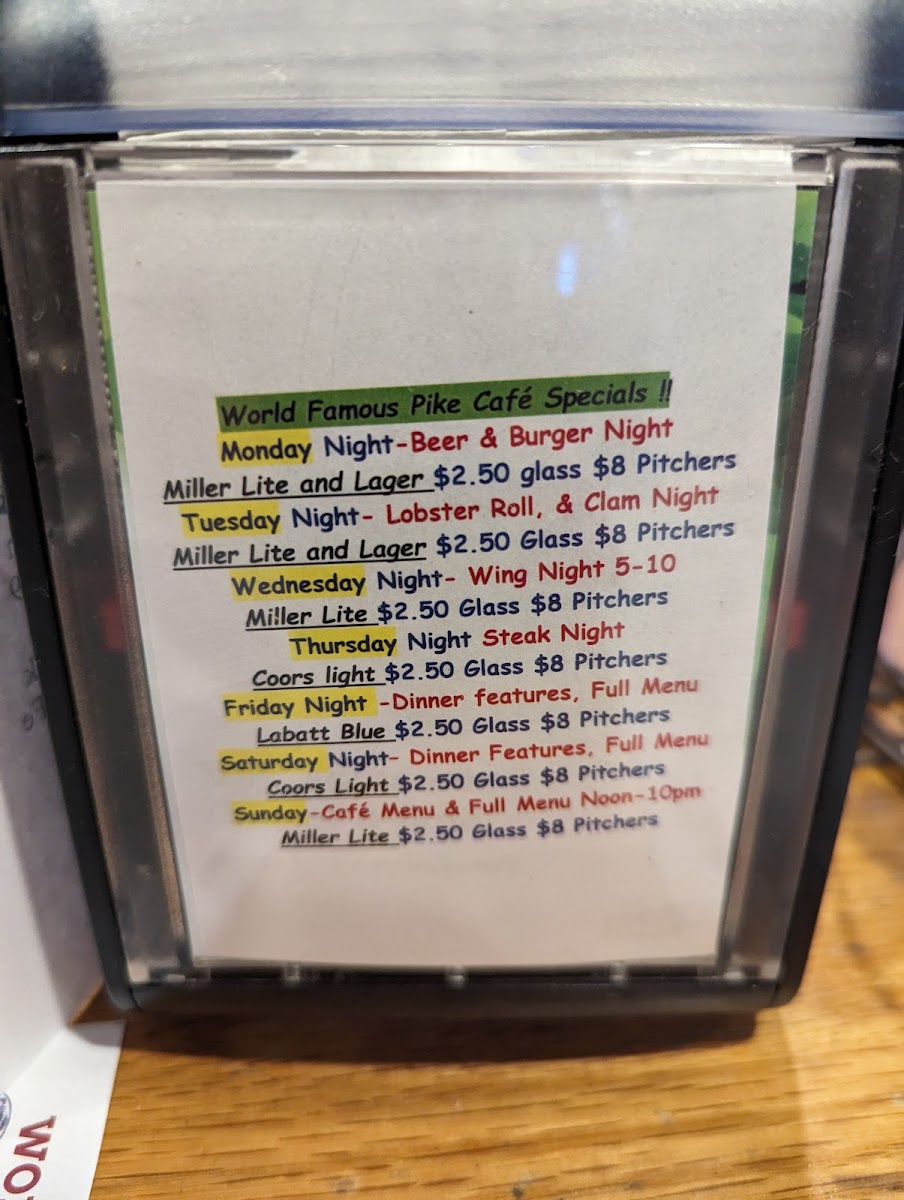 World Famous Pike Café Specials !!
Monday Night-Beer & Burger Night
Miller Lite and Lager $2.50 glass $8 Pitchers
Tuesday Night- Lobster Roll, & Clam Night
Miller Lite and Lager $2.50 Glass $8 Pitchers
Wednesday Night- Wing Night 5-10
Miller Lite $2.50 Glass $8 Pitchers
Thursday Night Steak Night
Coors light $2.50 Glass $8 Pitchers
Friday Night -Dinner features, Full Menu
Labatt Blue $2.50 Glass $8 Pitchers
Saturday Night- Dinner Features, Full Menu
Coors Light $2.50 Glass $8 Pitchers
Sunday-Café Menu & Full Menu Noon-10pm
Miller Lite $2.50 Glass $8 Pitchers